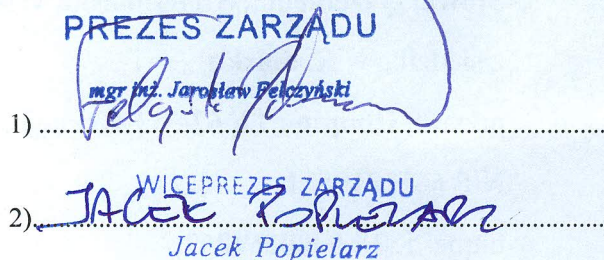 PREZES ZARZĄDU
mgr inż. Jarosław Pełczyński
1) ..........................................................
WICEPREZES ZARZĄDU
2) JACEK POPIELARZ
Jacek Popielarz